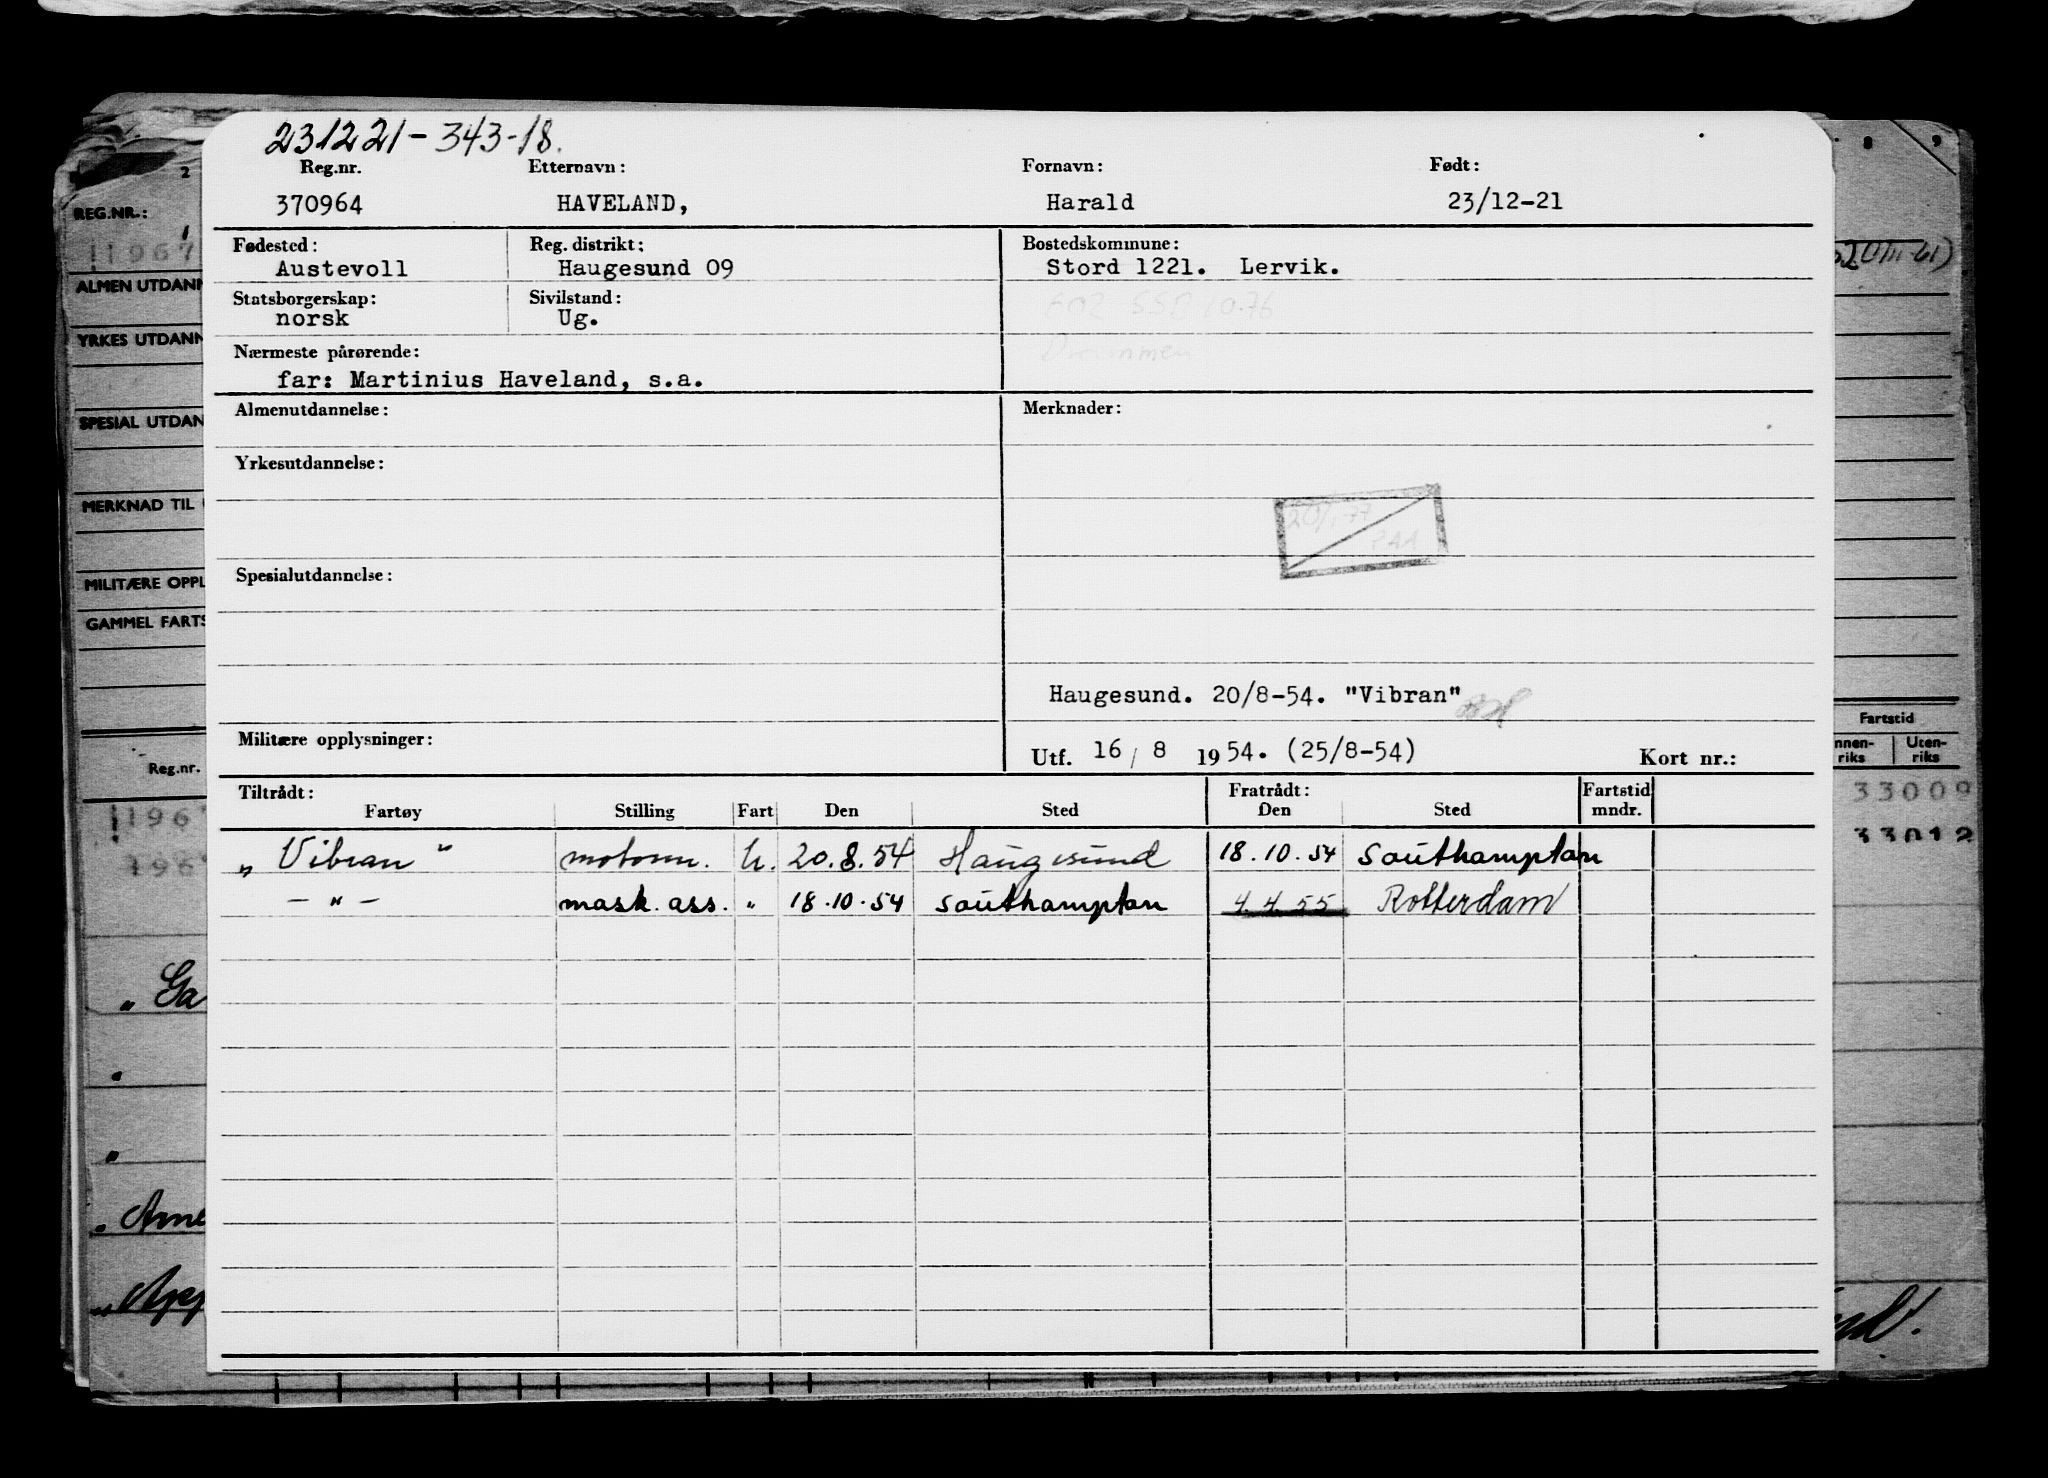 231221-343-18.
Reg.nr. Etternavn: Fornavn: Født:
370964 HAVELAND, Harald 23/12-21
Fødested: Reg. distrikt: Bostedskommune:
Austevoll Haugesund 09 Stord 1221. Lervik.
Statsborgerskap: Sivilstand:
norsk Ug.
Drammen
Nærmeste pårørende:
far: Martinius Haveland, s.a.
Almenutdannelse: Merknader:
Yrkesutdannelse:
Spesialutdannelse:
Haugesund. 20/8-54. "Vibran"
Militære opplysninger: Utf. 16/8 1954. (25/8-54) Kort nr.:
Tiltrådt: Fratrådt: Fartstid
Fartøy Stilling Fart Den Sted Den Sted mndr.
„ Vibran " motorm. U. 20.8.54 Haugesund 18.10.54 Southampton
— " — mask. ass. " 18.10.54 Southampton 4.4.55 Rotterdam
2
REG.NR.:
1
1967
ALMEN UTDANN
YRKES UTDANN
SPESIAL UTDAN
MERKNAD TIL
MILITÆRE OPPL
GAMMEL FARTS
Reg.nr.
196
196
„ Ga
"
"
„ Ame
„ App
8 9
Fartstid
nnen- Uten-
riks riks
33009
33012